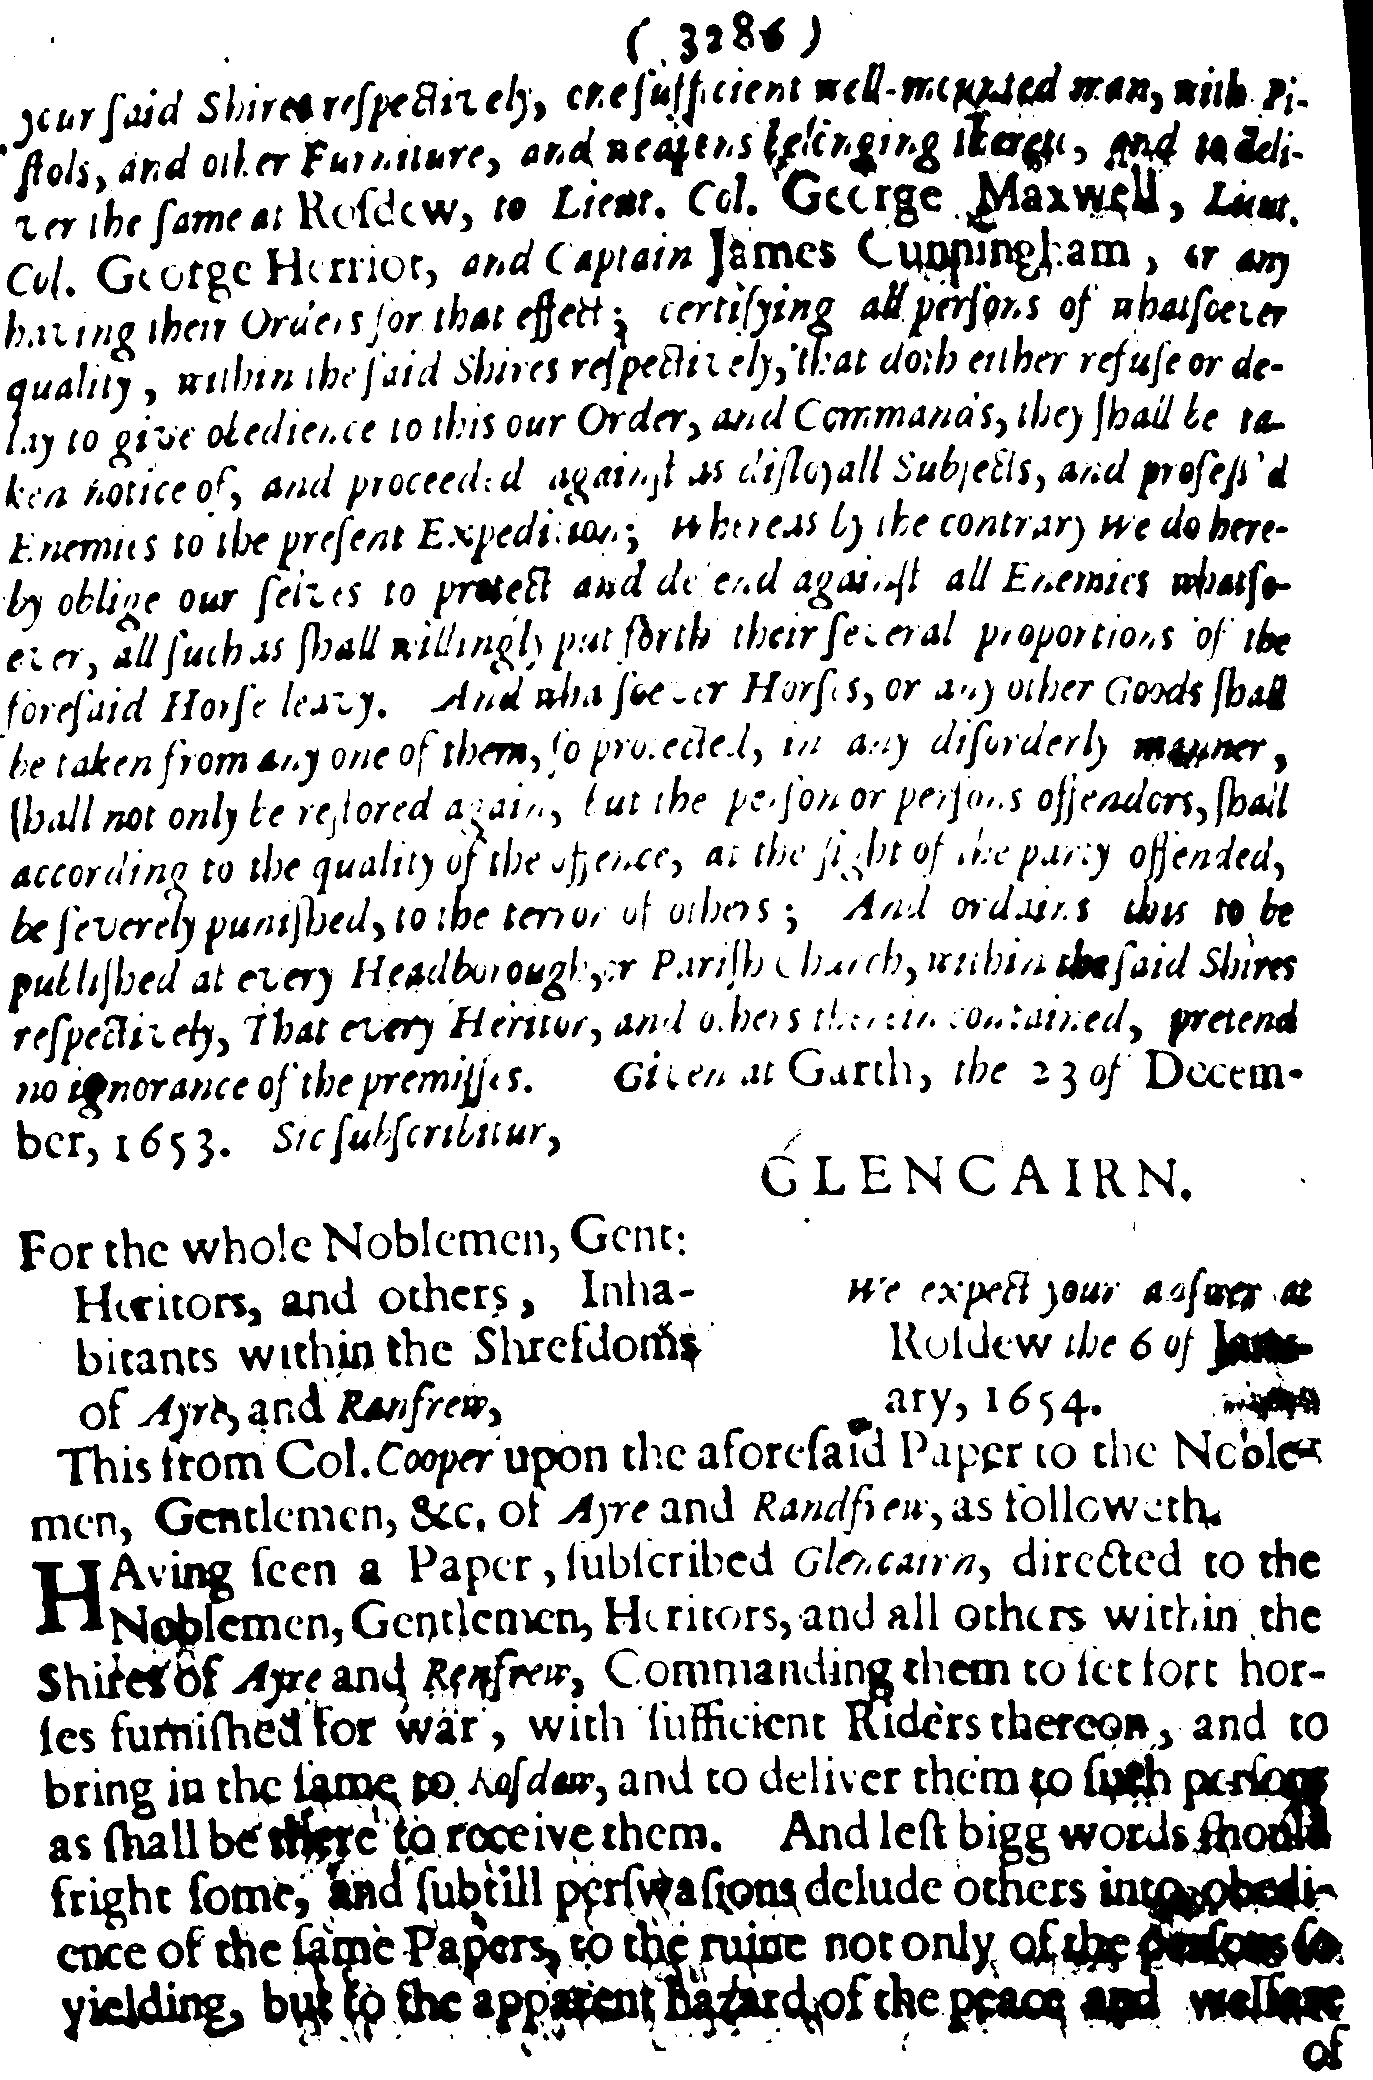 ( 3286 )
your ſaid Shires reſpectively, one ſufficient well-mounted man, with Pi-
ſtols, and other Furniture, and weapens belonging thereto, and to deli-
ver the ſame at Roſdew, to Lieut. Col. George Maxwell, Lieut.
Col. George Herriot, and Captain James Cunningham, or any
having their Orders for that effect; certifying all perſons of whatſoever
quality, within the ſaid Shires reſpectively, that doth either refuſe or de-
lay to give obedience to this our Order, and Commands, they ſhall be ta-
ken notice of, and proceeded againſt as diſloyall Subjects, and profeſs'd
Enemies to the preſent Expedition; Whereas by the contrary We do here-
by oblige our ſelves to protect and defend againſt all Enemies whatſo-
ever, all ſuch as ſhall willingly put forth their ſeveral proportions of the
foreſaid Horſe leavy. And whatſoever Horſes, or any other Goods ſhall
be taken from any one of them, ſo protected, in any diſorderly manner,
ſhall not only be reſtored again, but the perſon or perſons offendors, ſhall
according to the quality of the offence, at the ſight of the party offended,
be ſeverely puniſhed, to the terror of others; And ordains this to be
publiſhed at every Headborough, or Pariſh Church, within the ſaid Shires
reſpectively, That every Heritor, and others therein contained, pretend
no ignorance of the premiſſes. Given at Garth, the 23 of Decem-
ber, 1653. Sic ſubſcribitur,
GLENCAIRN.
For the whole Noblemen, Gent:
Heritors, and others, Inha-
bitants within the Shrefdoms
of Ayre, and Ranfrew,
We expect your anſwer at
Roſdew the 6 of Janu-
ary, 1654.
This from Col. Cooper upon the aforeſaid Paper to the Noble-
men, Gentlemen, &c. of Ayre and Randfrew, as followeth.
HAving ſeen a Paper, ſubſcribed Glencairn, directed to the
Noblemen, Gentlemen, Heritors, and all others within the
Shires of Ayre and Renfrew, Commanding them to ſet fort hor-
ſes furniſhed for war, with ſufficient Riders thereon, and to
bring in the ſame to Roſdew, and to deliver them to ſuch perſons
as ſhall be there to receive them. And leſt bigg words ſhould
fright ſome, and ſubtill perſwaſions delude others into obedi-
ence of the ſame Papers, to the ruine not only of the perſons ſo
yielding, but to the apparent hazard of the peace and welfare
of